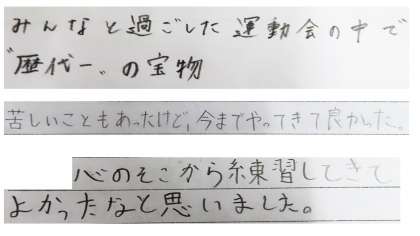 みんなと過ごした運動会の中で
〝歴代一〟の宝物
苦しいこともあったけど、今までやってきて良かった。
心のそこから練習してきて
よかったなと思いました。